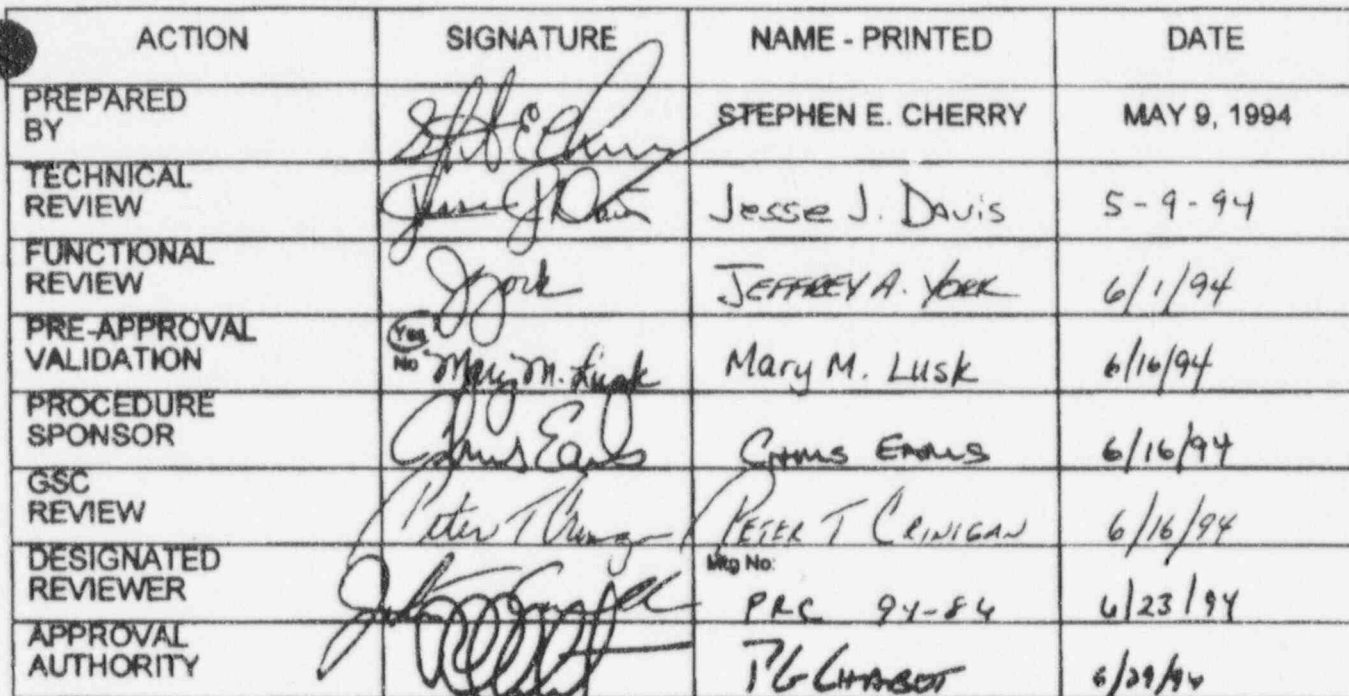 ACTION SIGNATURE NAME - PRINTED DATE
PREPARED
BY
STEPHEN E. CHERRY MAY 9, 1994
TECHNICAL
REVIEW
Jesse J. Davis 5-9-94
FUNCTIONAL
REVIEW
JYork JEFFREY A. YORK 6/1/94
PRE-APPROVAL
VALIDATION
Yes
No Mary M. Lusk Mary M. Lusk 6/16/94
PROCEDURE
SPONSOR
Chris Earls CHRIS EARLS 6/16/94
GSC
REVIEW
Peter T PETER T CRINIGAN 6/16/94
DESIGNATED
REVIEWER
Mtg No:
PRC 94-84 6/23/94
APPROVAL
AUTHORITY
PG CHABOT 6/29/94